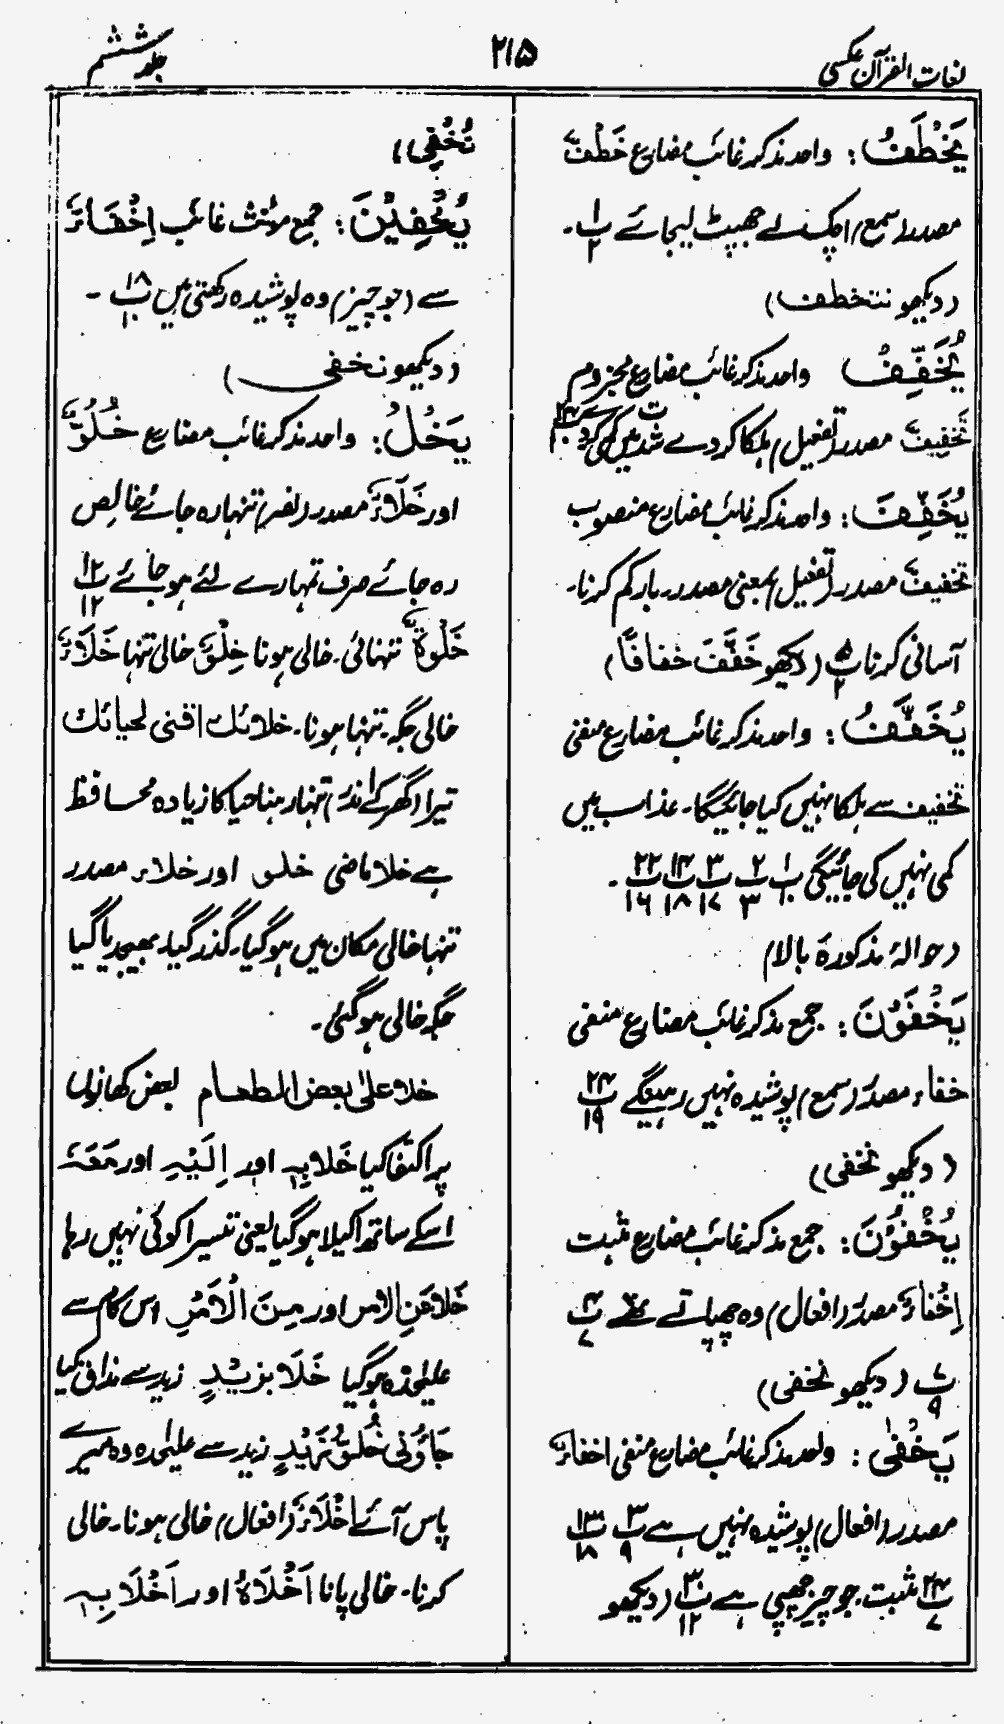 لغات القرآن عکسی
۲۱۵
جلد ششم
یَخْطَفُ: واحد مذکر غائب مضارع خَطْفٌ
مصدر (سمع) اچک لے جھپٹ لیجائے پ ۱ ۲۔
(دیکھو نتخطف)
یُخَفِّفُ واحد مذکر غائب مضارع مجزوم
تخفیفٌ مصدر (تفعیل) ہلکا کردے شدت میں کمی کردے پ ۲۴
یُخَفِّفَ: واحد مذکر غائب مضارع منصوب
تخفیفٌ مصدر (تفعیل) بمعنی مصدر۔ بار کم کرنا۔
آسانی کرنا پ ۵ ۲ (دیکھو خَفَّفَ خفافًا)
یُخَفَّفُ: واحد مذکر غائب مضارع منفی
تخفیف سے ہلکا نہیں کیا جائیگا۔ عذاب میں
کمی نہیں کی جائیگی پ ۱ ۱۰ پ ۲ ۳ پ ۳ ۱۷ پ ۱۴ ۱۸ پ ۲۲ ۱۶۔
(حوالۂ مذکورۃ بالا)
یَخْفَوْنَ: جمع مذکر غائب مضارع منفی
خفاء مصدر (سمع) پوشیدہ نہیں رہینگے پ ۲۴ ۱۹
(دیکھو تخفی)
یُخْفُوْنَ: جمع مذکر غائب مضارع مثبت
اِخْفاءٌ مصدر (افعال) وہ چھپاتے تھے پ ۴ ۷
پ ۷ ۹ (دیکھو نخفی)
یَخْفٰی: واحد مذکر غائب مضارع منفی اخفاءٌ
مصدر (افعال) پوشیدہ نہیں ہے پ ۳ ۹ پ ۱۳ ۱۸
پ ۲۴ ۷ مثبت۔ جو چیز چھپی ہے پ ۳۰ ۱۲ (دیکھو
تُخْفِی)
یُخْفِیْنَ: جمع مؤنث غائب اِخْفَاءٌ
سے (جو چیز) وہ پوشیدہ رکھتی ہیں پ ۱۸ ۱۰۔
(دیکھو نخفی)
یَخْلُ: واحد مذکر غائب مضارع خُلُوٌّ
اور خَلَاءٌ مصدر (نصر) تنہا رہ جائے خالص
رہ جائے صرف تمہارے لئے ہو جائے پ ۱۲ ۱۲
خَلْوَۃٌ تنہائی۔ خالی ہونا خِلْوٌ خالی تنہا خَلَاءٌ
خالی جگہ۔ تنہا ہونا۔ خلائك اقنی لحیائك
تیرا (گھر کے اندر) تنہا رہنا حیا کا زیادہ محافظ
ہے خلا ماضی خلو اور خلاء مصدر
تنہا خالی مکان میں ہوگیا۔ گذر گیا۔ بھیجدیا گیا
جگہ خالی ہوگئی۔
خلا علیٰ بعض الطعام بعض کھانوں
پر اکتفا کیا خَلَا بِہٖ اور اِلَیْہِ اور مَعَہٗ
اسکے ساتھ اکیلا ہوگیا یعنی تیسرا کوئی نہیں رہا
خَلَا عَنِ الامر اور مِنَ الْاَمْرِ اس کام سے
علیٰحدہ ہوگیا خَلَا بزیدٍ زید سے مذاق کیا
جَاؤُنِی خُلُوَّ زَیْدٍ زید سے علیٰحدہ وہ میرے
پاس آئے اَخْلَاءٌ (افعال) خالی ہونا۔ خالی
کرنا۔ خالی پانا اَخْلَاہُ اور اَخْلَا بِہٖ